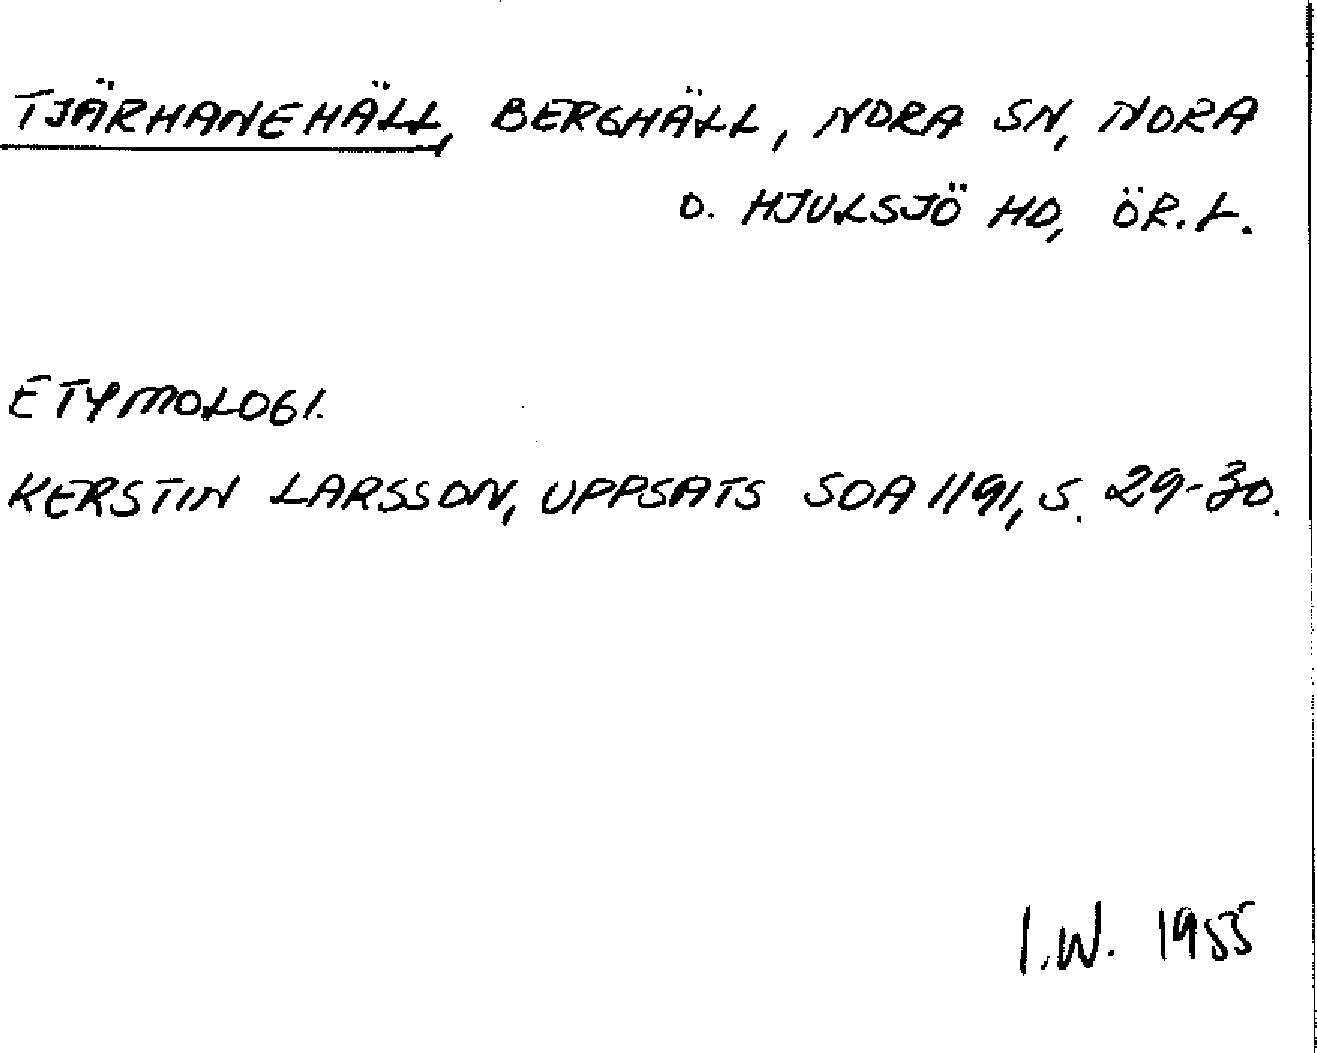 TJÄRHANEHÄLL, BERGHÄLL, NORA SN, NORA
O. HJULSJÖ HD, ÖR.L.
ETYMOLOGI.
KERSTIN LARSSON, UPPSATS SOA 1191, S. 29-30.
I.W. 1955